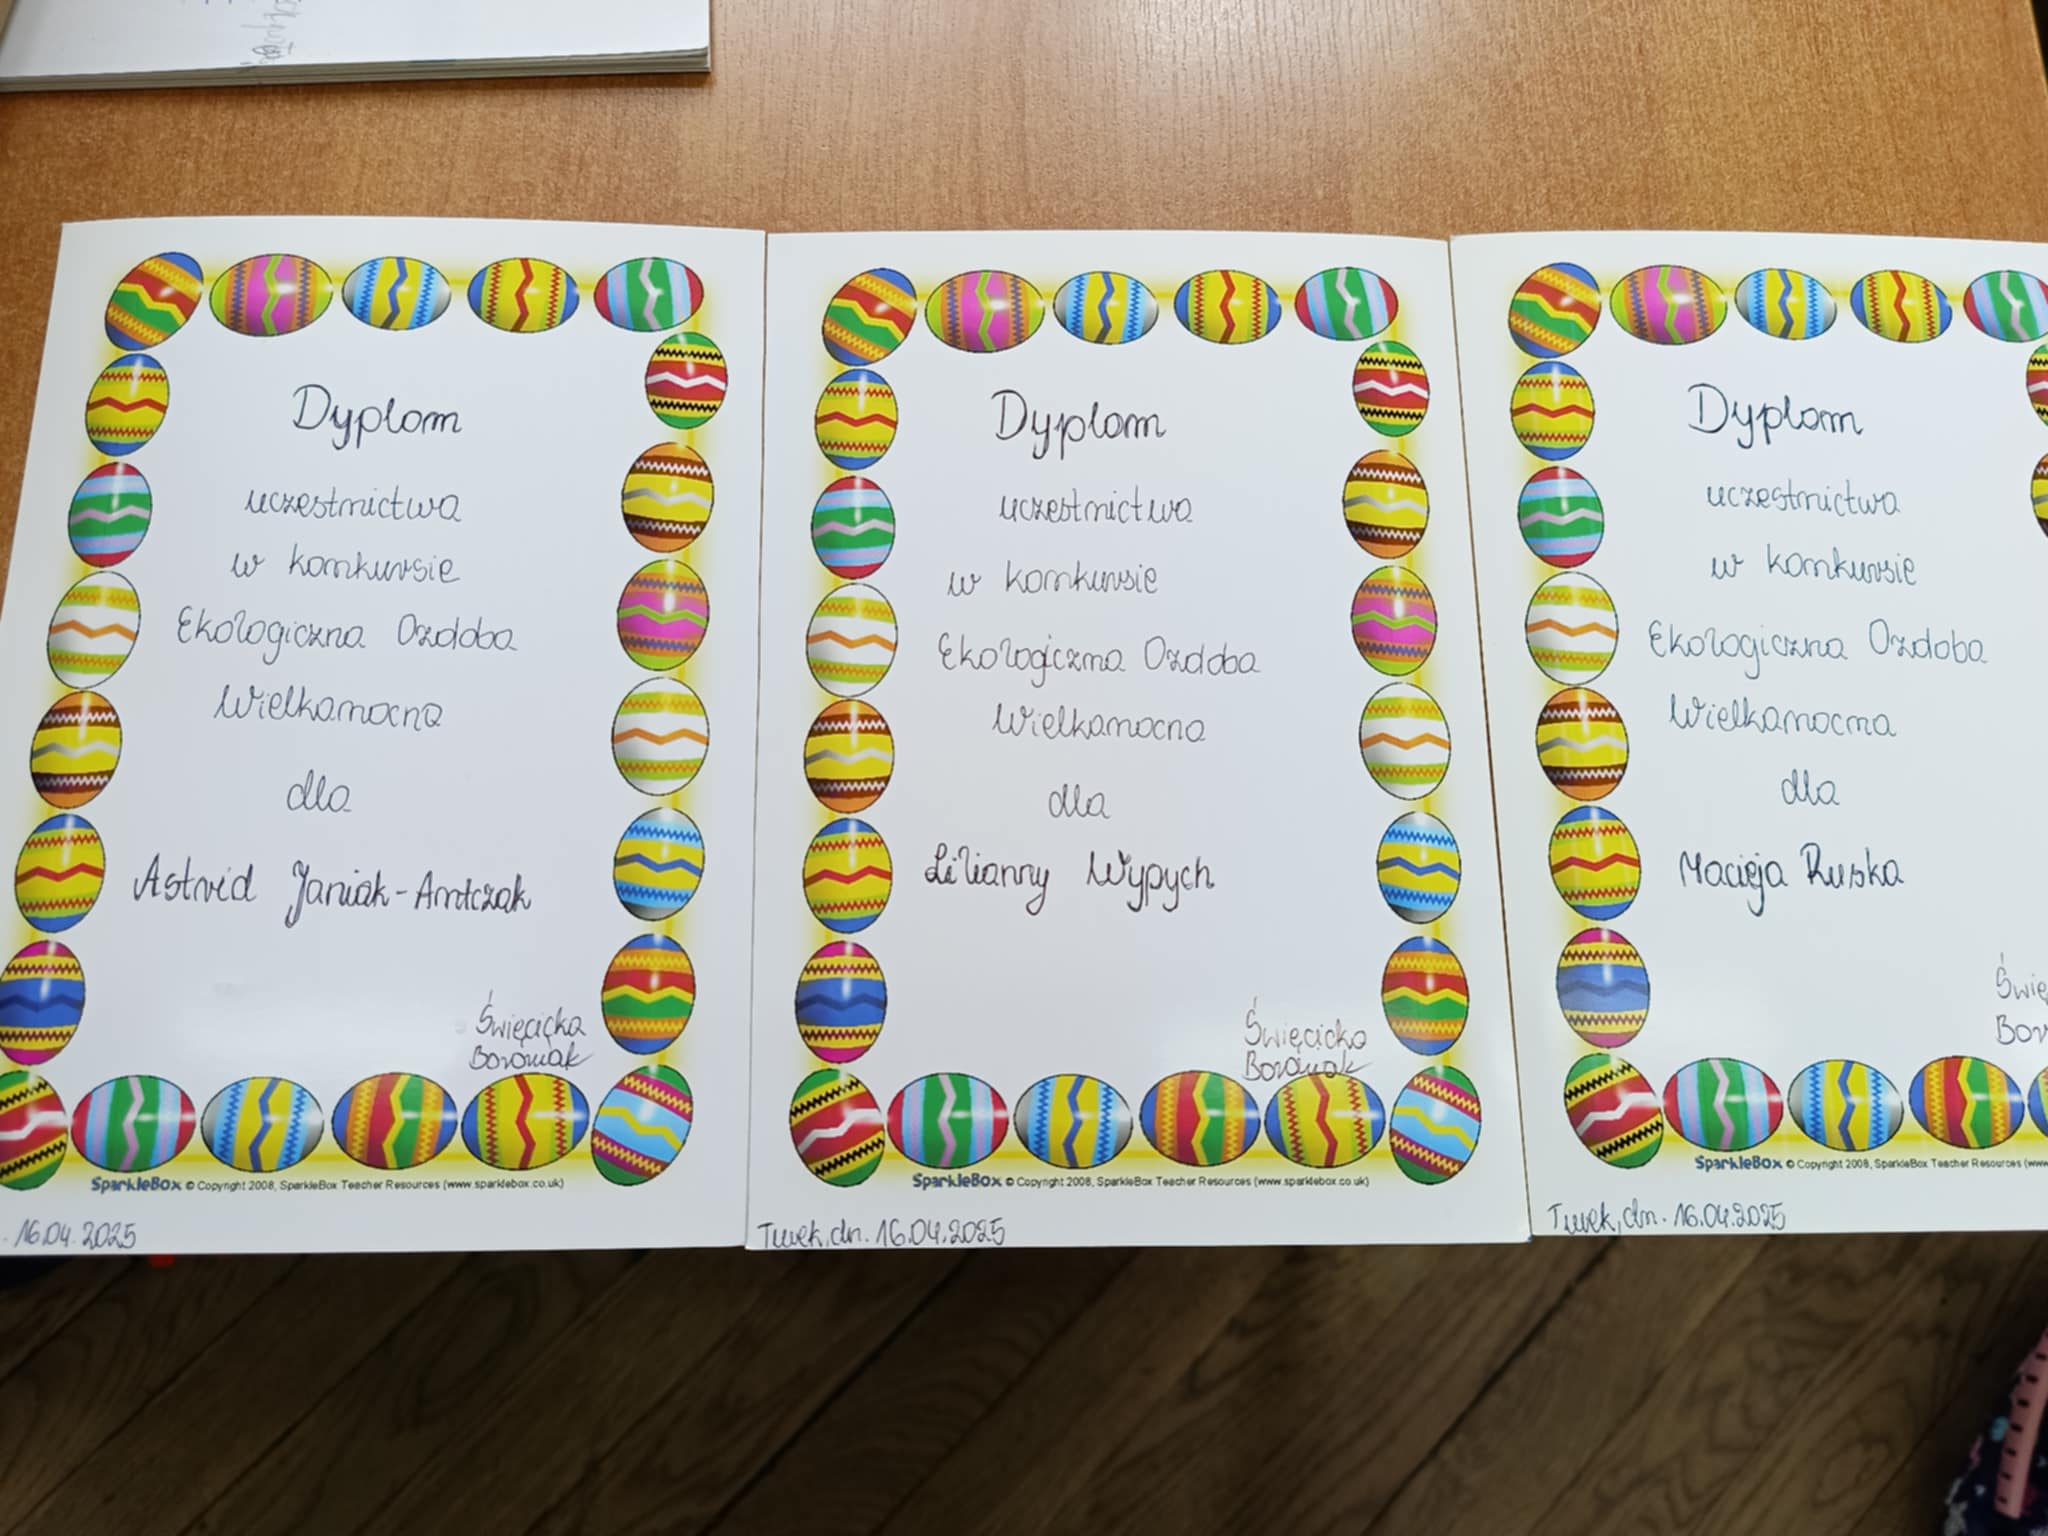 Dyplom
uczestnictwa
w konkursie
Ekologiczna Ozdoba
Wielkanocna
dla
Astrid Janiak-Antczak
Święcicka
Boroniak
SparkleBox © Copyright 2008, SparkleBox Teacher Resources (www.sparklebox.co.uk)
. 16.04.2025
Dyplom
uczestnictwa
w konkursie
Ekologiczna Ozdoba
Wielkanocna
dla
Lilianny Wypych
Święcicka
Boroniak
SparkleBox © Copyright 2008, SparkleBox Teacher Resources (www.sparklebox.co.uk)
Turek, dn. 16.04.2025
Dyplom
uczestnictwa
w konkursie
Ekologiczna Ozdoba
Wielkanocna
dla
Macieja Ruska
Świę
Bor
SparkleBox © Copyright 2008, SparkleBox Teacher Resources (ww
Turek, dn. 16.04.2025